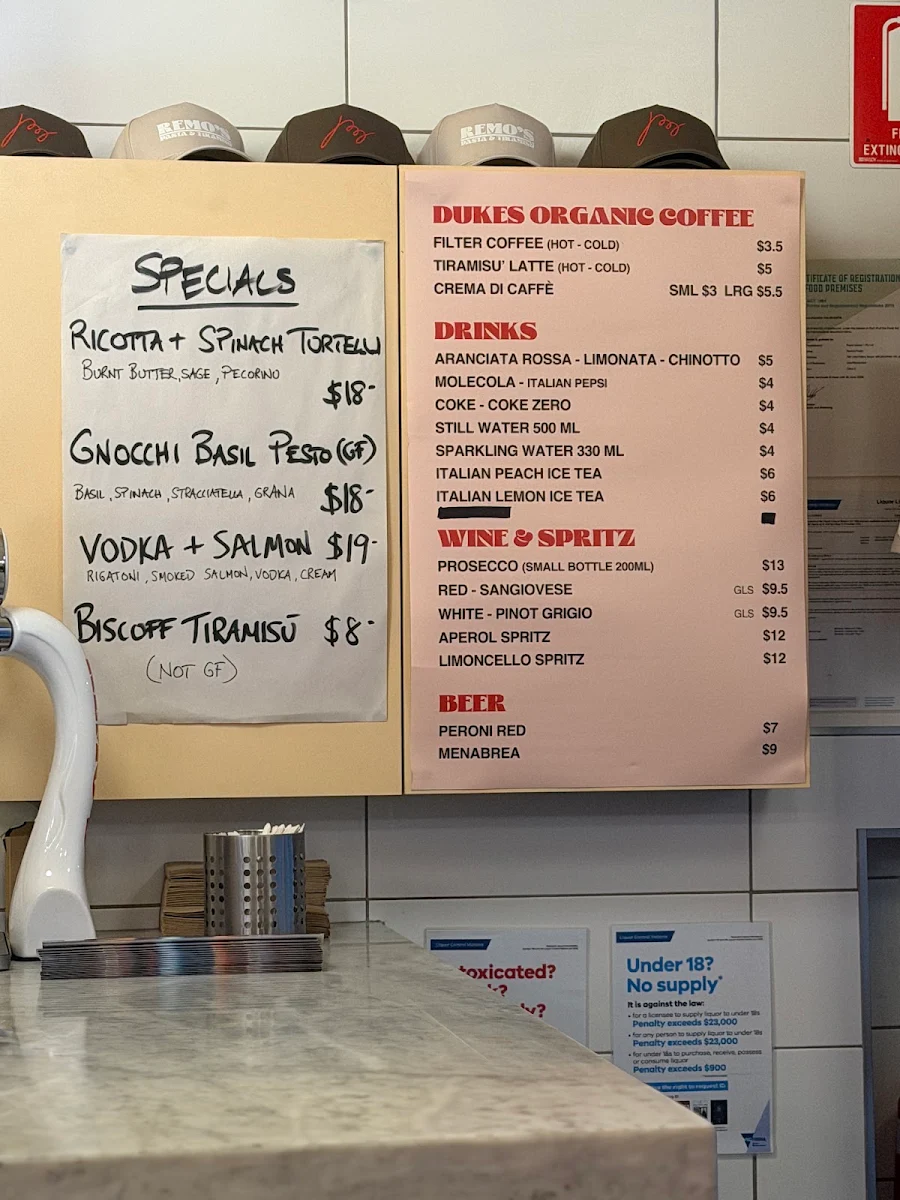 REMO'S
PASTA & TIRAMISÙ
REMO'S
PASTA & TIRAMISÙ
SPECIALS
RICOTTA + SPINACH TORTELLI
BURNT BUTTER, SAGE, PECORINO
$18-
GNOCCHI BASIL PESTO (GF)
BASIL, SPINACH, STRACCIATELLA, GRANA $18-
VODKA + SALMON $19-
RIGATONI, SMOKED SALMON, VODKA, CREAM
BISCOFF TIRAMISŪ $8-
(NOT GF)
DUKES ORGANIC COFFEE
FILTER COFFEE (HOT - COLD) $3.5
TIRAMISU' LATTE (HOT - COLD) $5
CREMA DI CAFFÈ SML $3 LRG $5.5
DRINKS
ARANCIATA ROSSA - LIMONATA - CHINOTTO $5
MOLECOLA - ITALIAN PEPSI $4
COKE - COKE ZERO $4
STILL WATER 500 ML $4
SPARKLING WATER 330 ML $4
ITALIAN PEACH ICE TEA $6
ITALIAN LEMON ICE TEA $6
WINE & SPRITZ
PROSECCO (SMALL BOTTLE 200ML) $13
RED - SANGIOVESE GLS $9.5
WHITE - PINOT GRIGIO GLS $9.5
APEROL SPRITZ $12
LIMONCELLO SPRITZ $12
BEER
PERONI RED $7
MENABREA $9
EXTING
TIFICATE OF REGISTRATION
FOOD PREMISES
toxicated?
Under 18?
No supply*
It is against the law:
• for a licensee to supply liquor to under 18s
Penalty exceeds $23,000
• for any person to supply liquor to under 18s
Penalty exceeds $23,000
• for under 18s to purchase, receive, possess
or consume liquor
Penalty exceeds $900